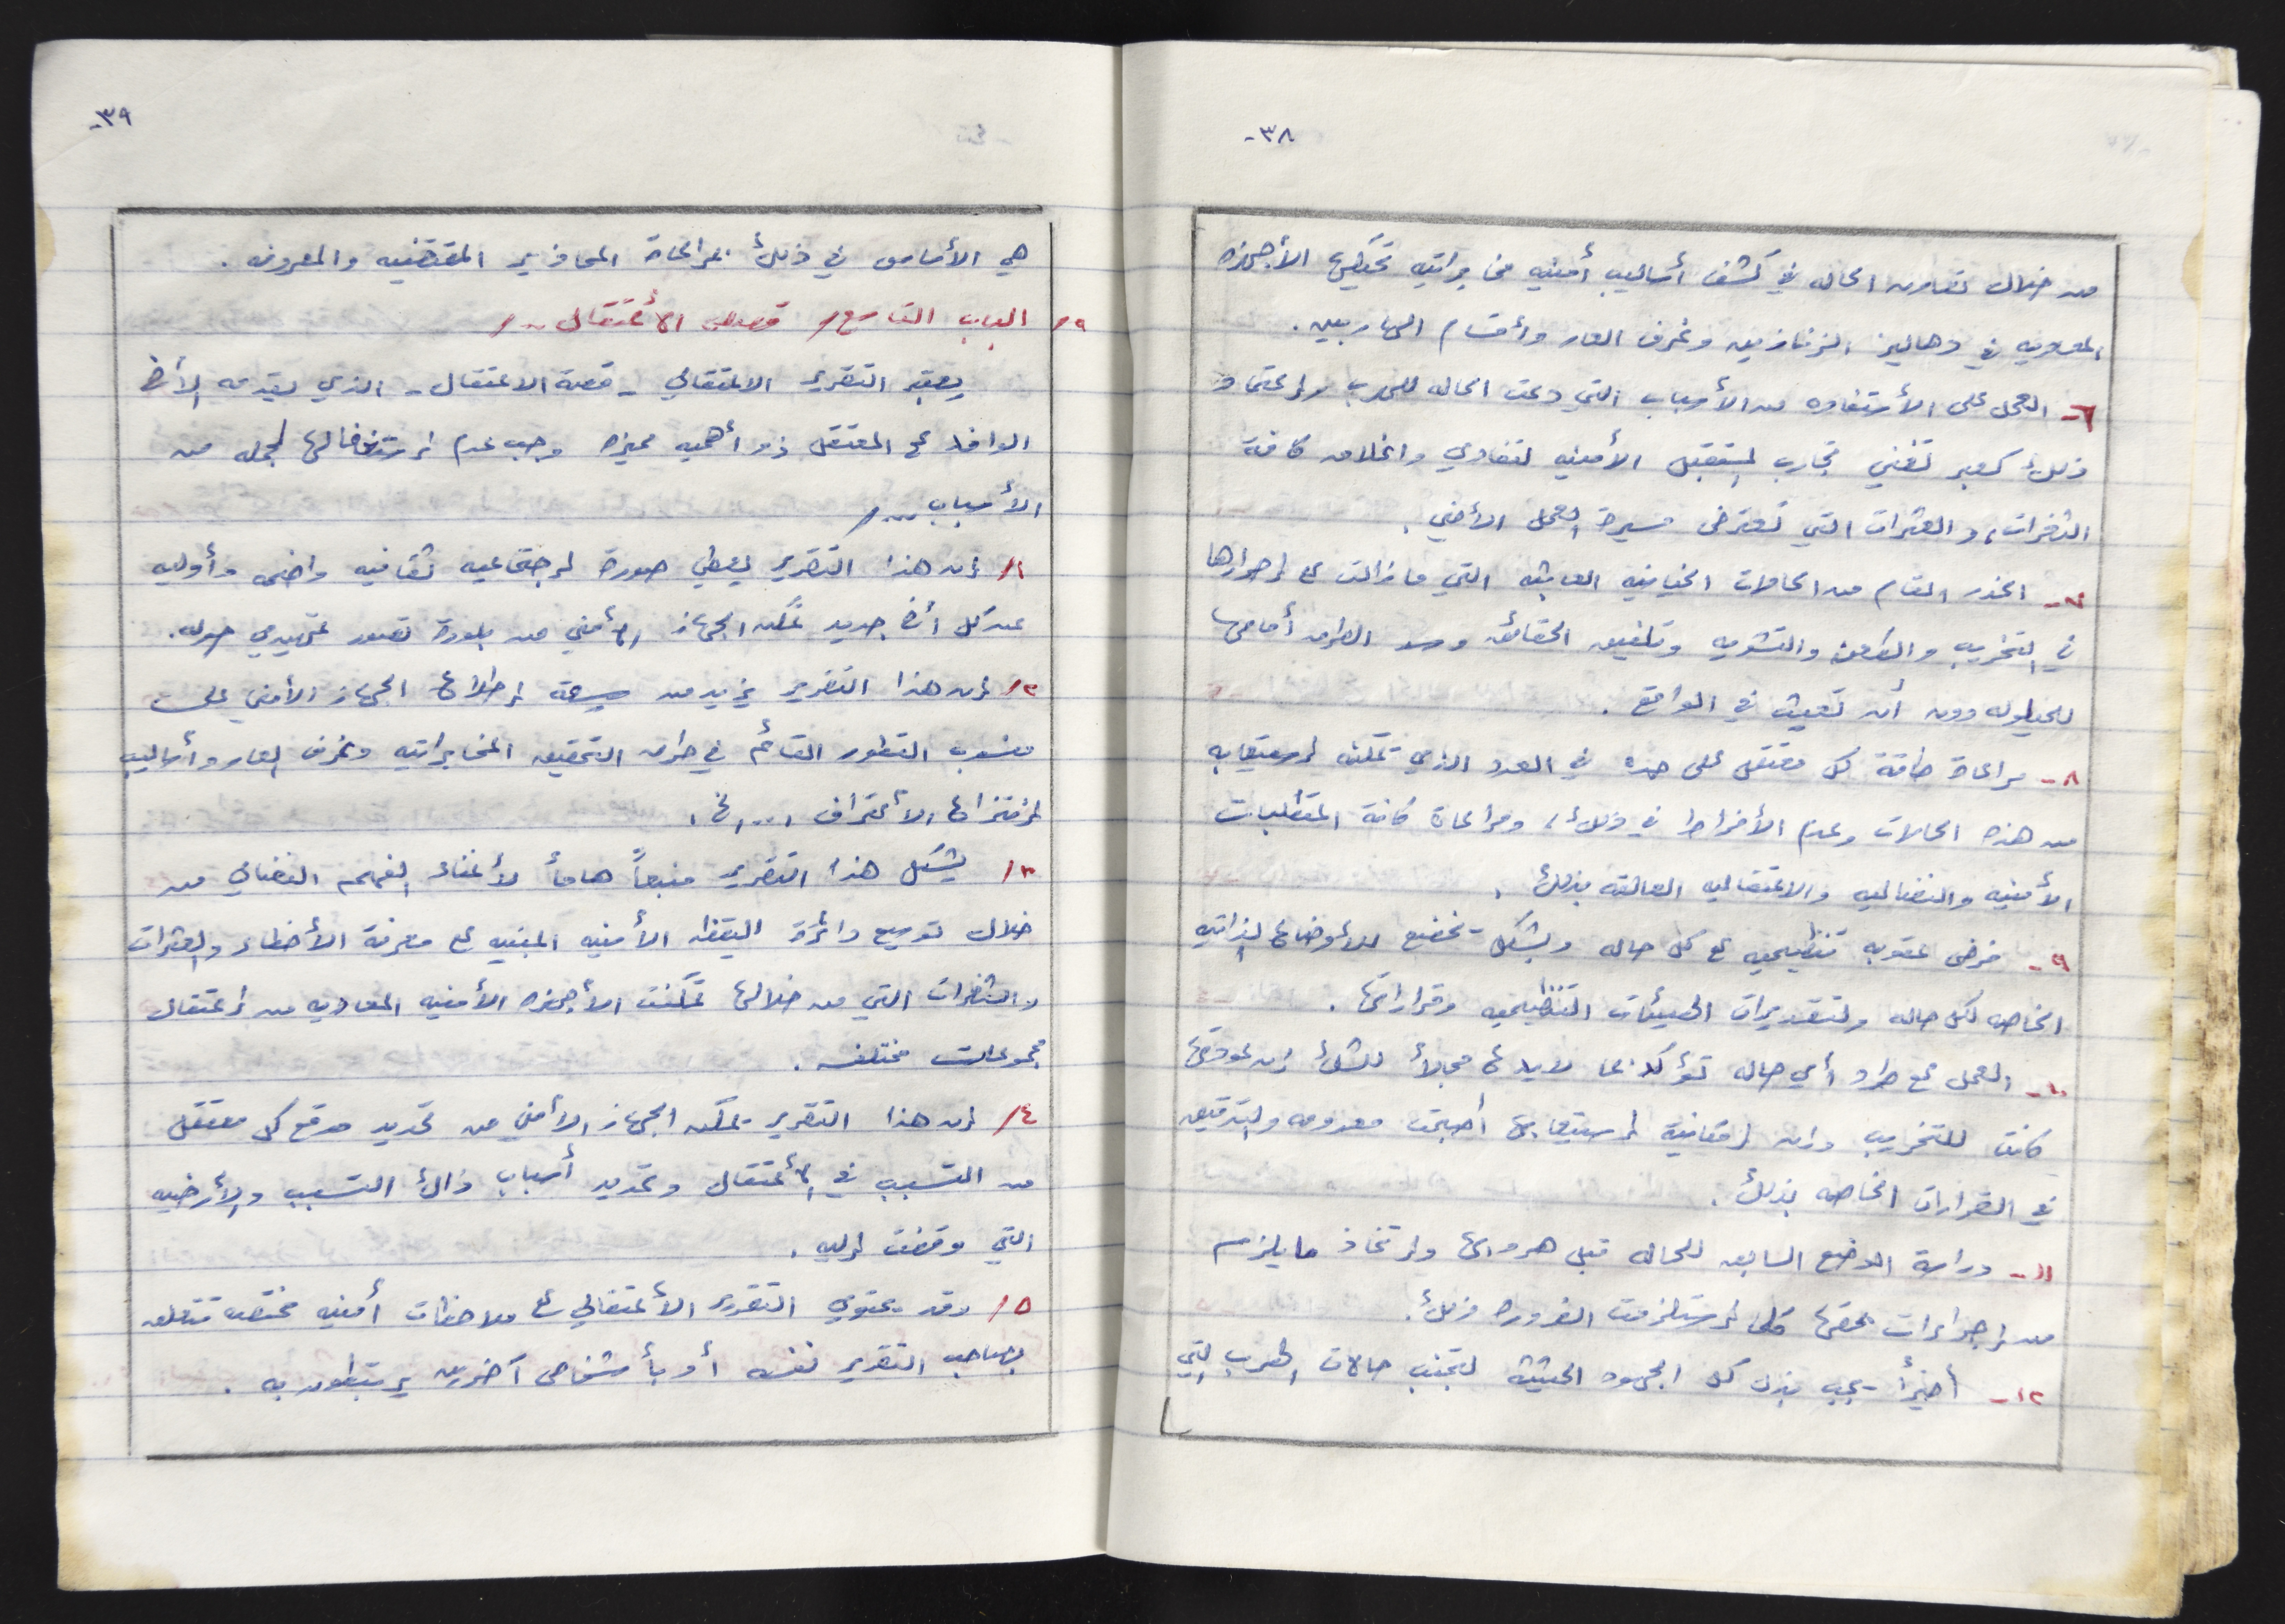 ٣٨-
من خلال تعاون الحاله في كشف أساليب أمنيه مخابراتيه تحيكها الأجهزه
المعاديه في دهاليز الزنازين وغرف العار وأقسام الهاربين.
٦- العمل على الأستفاده من الأسباب التي دعت الحاله للهرب وإعتماد
ذلك كعبر تغني تجارب المستقبل الأمنيه لتفادي واغلاق كافة
الثغرات، والعثرات التي تعترض مسيرة العمل الأمني.
٧- الحذر التام من الحالات الخيانيه العابثه التي مازالت على إصرارها
في التخريب والطعن والتشويه وتلفيق الحقائق وسد الطرق أمامها
للحيلوله دون أن تعيث في الواقع.
٨- مراعاة طاقة كل معتقل على حده في العدد الذي تمكنه إستيعابه
من هذه الحالات وعدم الأفراط في ذلك، ومراعاة كافة المتطلبات
الأمنيه والنضاليه والاعتقاليه العالقه بذلك.
٩- فرض عقوبه تنظيميه على كل حاله وبشكل تخضع للأوضاع الذاتيه
الخاصه لكل حاله ولتقديرات الهيئات التنظيميه وقراراتها.
١٠- العمل مع طرد أي حاله تؤكد بما لا يدع مجالاً للشك إن عودتها
كانت للتخريب وإن إمكانية إستيعابها أصبحت معدومه والتدقيق
في القرارات الخاصه بذلك.
١١- دراسة الوضع السابق للحاله قبل هروبها وإتخاذ ما يلزم
من إجراءات بحقها كلما إستلزمت الضروره ذلك.
١٢- أخيراً يجب بذل كل الجهود الحثيثة لتجنب حالات الهرب التي
٣٩-
هي الأساس في ذلك بمراعاة المحاذير المقتضيه والمعروفه.
٩/ الباب التاسع/ قصص الأعتقال../
يعتبر التقرير الاعتقالي - قصة الاعتقال - الذي يقدمه الأخ
الوافد على المعتقل ذو أهميه مميزه وجب عدم إستغفالها لجمله من
الأسباب.../
١/ إن هذا التقرير يعطي صورة إجتماعيه ثقافيه واضحه وأوليه
عن كل أخ جديد تمكن الجهاز الأمني من بلورة تصور تمهيدي حوله.
٢/ إن هذا التقرير يزيد من سعة إطلاع الجهاز الأمني على
منسوب التطور القائم في طرق التحقيق المخابراتيه وغرف العار وأساليب
إنتزاع الأعتراف ...الخ.
٣/ يشكل هذا التقرير منبعاً هاماً لأغناء الفهم النضالي من
خلال توسيع دائرة اليقظه الأمنيه المبنيه على معرفة الأخطاء والعثرات
والثغرات التي من خلالها تمكنت الأجهزه الأمنيه المعاديه من إعتقال
مجموعات مختلفه.
٤/ إن هذا التقرير يمكن الجهاز الأمني من تحديد موقع كل معتقل
من التسبب في الأعتقال وتحديد أسباب ذالك التسبب والأرضيه
التي وقفت إليه.
٥/ وقد يحتوي التقرير الأعتقالي على ملاحظات أمنيه مختصه تتعلق
بصاحب التقرير نفسه أو بأشخاص آخرين يرتبطون به.